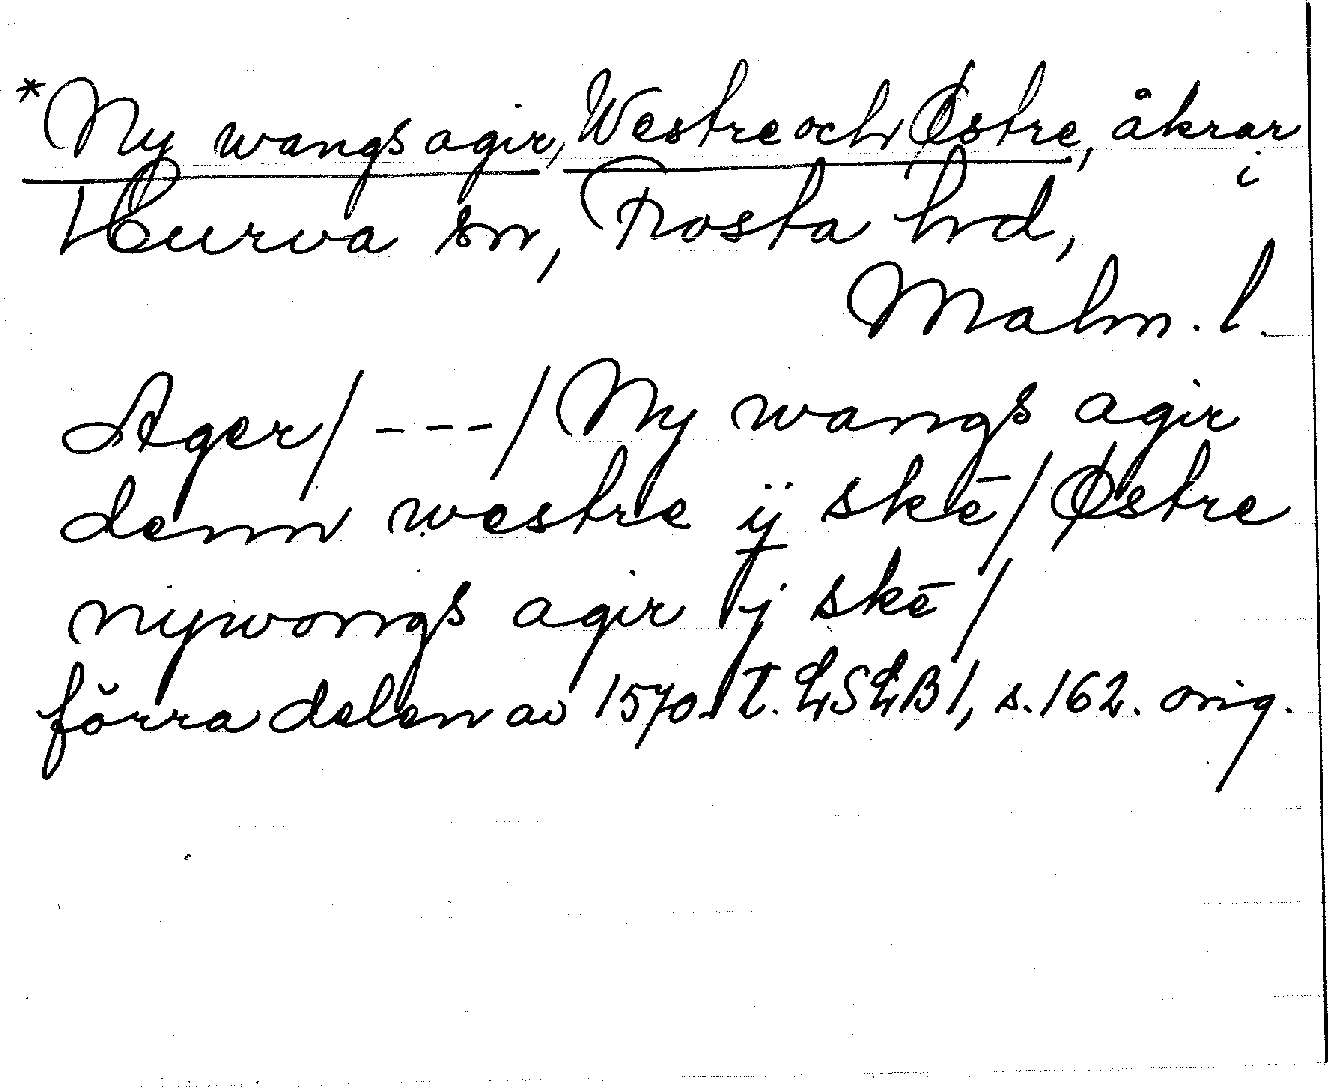 *Ny wangs agir, Westre och Østre, åkrar i
Hurva sn, Frosta hd,
Malm. l.
Ager/ - - - / Ny wangs agir
denn westre ij skē/ Østre
nywongs agir ij skē/
förra delen av 1570-t. LSLB 1, s. 162. orig.